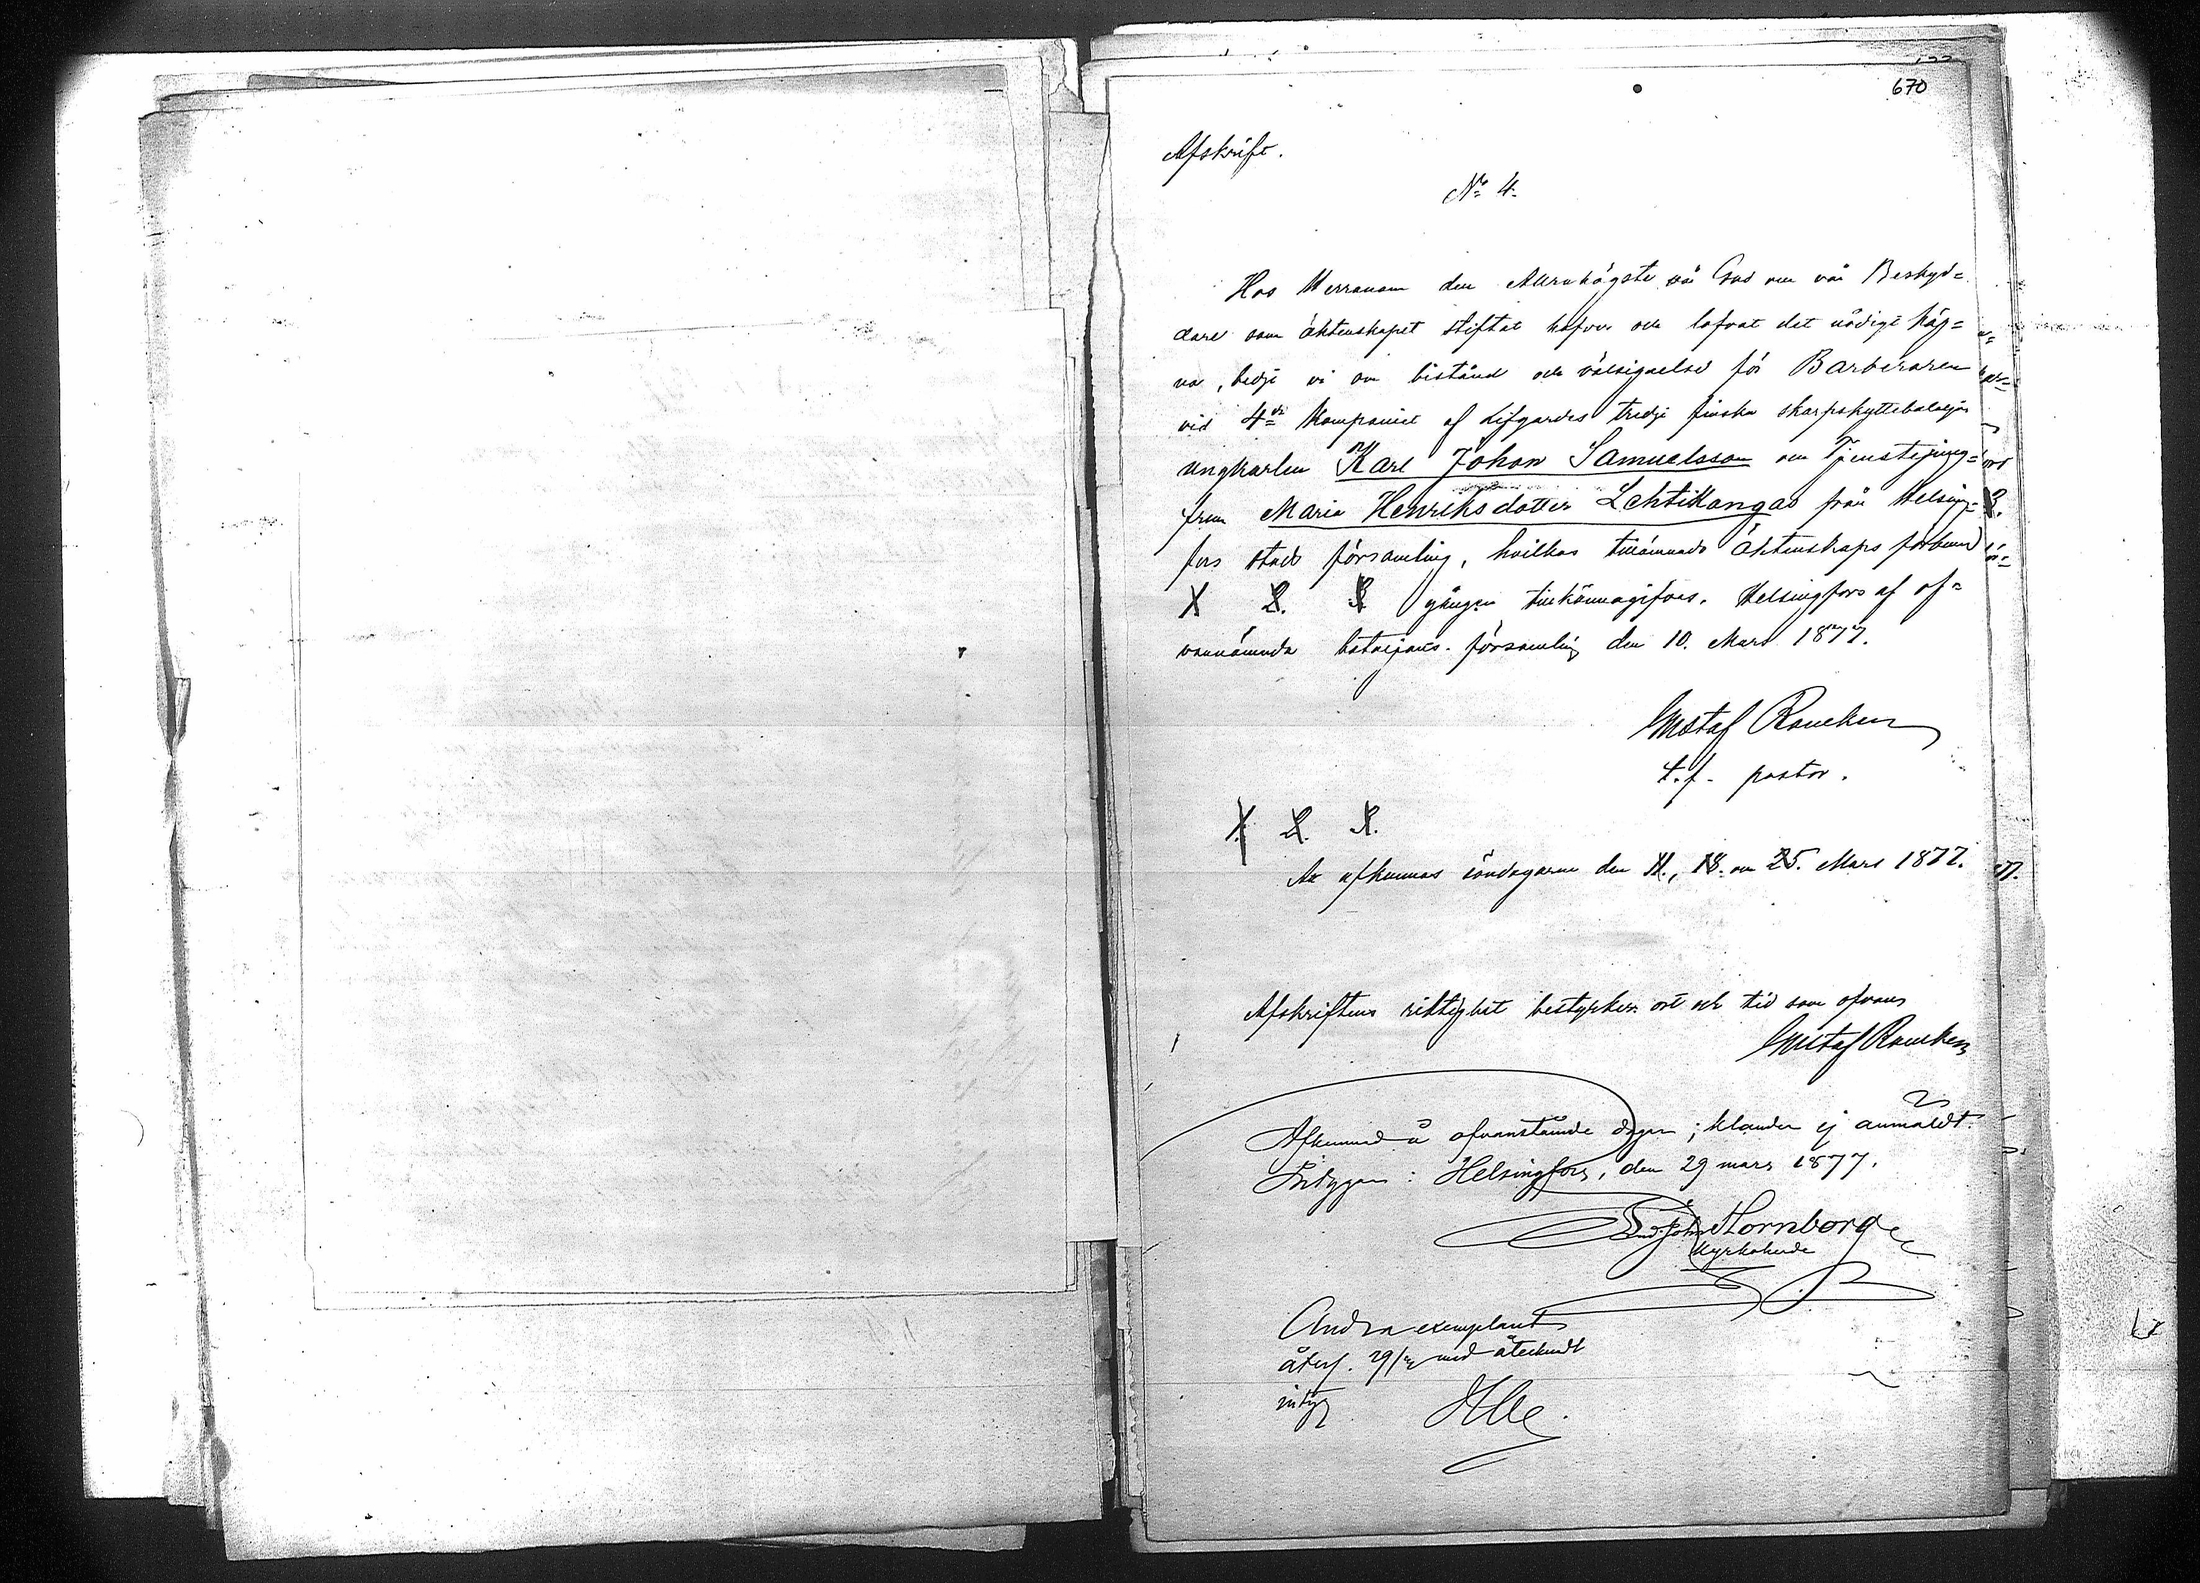 670
Afskrift.
No 4.
Hos Herranom den Allrahögste vår Gud och vår Beskyd=
dare som äktenskapet stiftat hafver och lofvat det nådigt häg=
na, bedje vi om bistånd och välsignelse för Barberaren
vid 4de Kompaniet af Lifgardes tredje finska skarpskyttebataljon
ungkarlen Karl Johan Samuelsson och Tjenstejung=
frun Maria Henriksdotter Lehtikangas från Helsing=
fors stads församling, hvilkas tillämnade äktenskaps förbund
1 2. 3 gången tillkännagifves. Helsingfors af of=
vannämnda bataljons-församling den 10. Mars 1877.
Gustaf Rancken
t.f. pastor.
1. 2. 3.
At afkunnas söndagarne den 11., 18. och 25. Mars 1877.
Afskriftens riktighet bestyrker: ort och tid som ofvan
Gustaf Rancken
Afkunnad å ofvanstående dagar; klander ej anmäldt.
Intygar: Helsingfors, den 29 mars 1877.
Hornborg
Kyrkoherde
Andra exemplaret
åters. 29/3 med återkundt
intyg